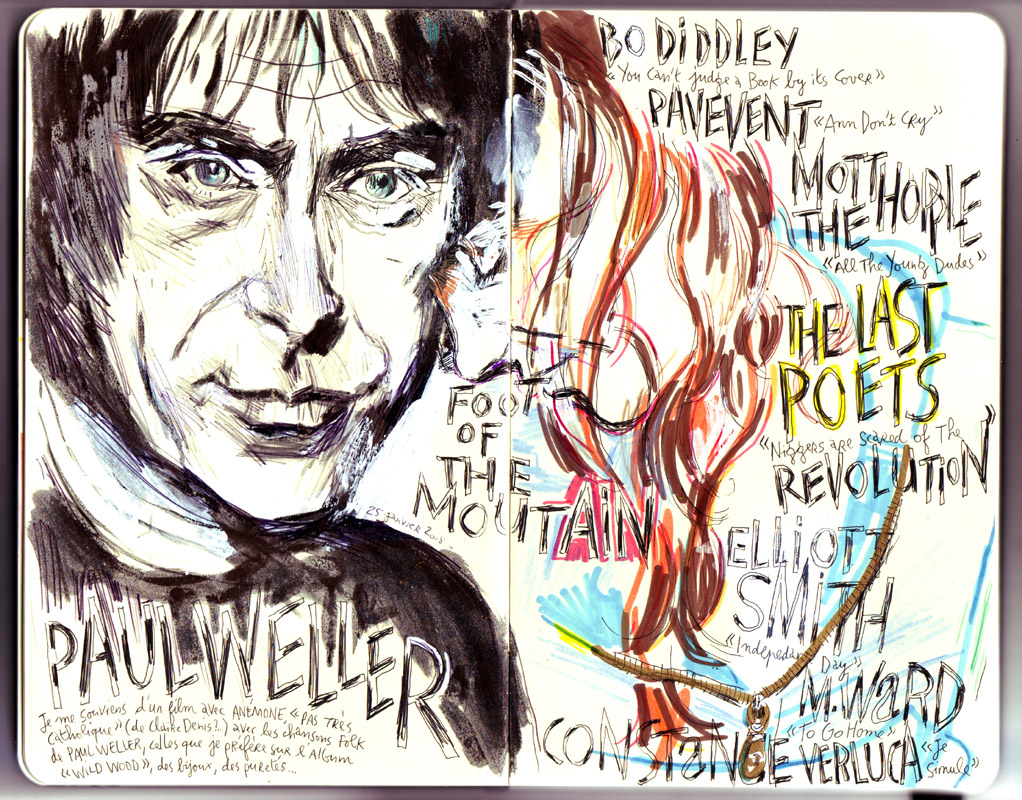 FOOT
OF
THE
MOUTAIN
25 janvier 2018
PAUL WELLER
Je me souviens d'un film avec ANEMONE, « PAS TRÈS
Catholique » (de Claire Denis?..) avec les chansons Folk
de PAUL WELLER, celles que je préfère sur l'Album
« WILD WOOD », des bijoux, des puretés...
BO DiDDLEY
« You Can't judge a Book by its Cover »
PAVEVENT « Ann Don't Cry »
MOTT
THE HOPLE
« All The Young Dudes »
THE LAST
POETS
« Niggers are scared of The
REVOLUTiON »
ELLiOTT
SMiTH
« Independant Day »
M. WaRD
« To Go Home »
CONSTANCE VERLUCA « Je
Simule »